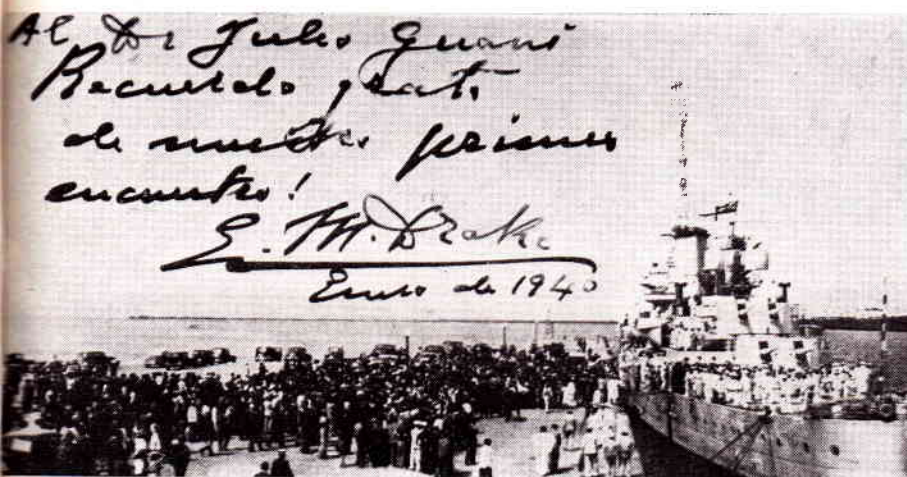 Al Dr Julio Guani
Recuerdo grato
de nuestro primer
encuentro!
E. M. Drake
Enero de 1940